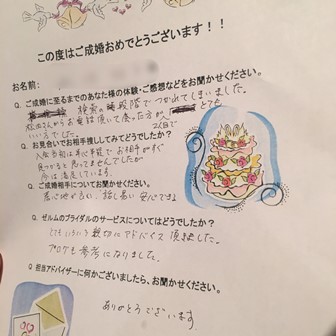 この度はご成婚おめでとうございます！！
お名前：
Q. ご成婚に至るまでのあなた様の体験・ご感想などをお聞かせください。
検索の 段階でつかれてしまいました。
さんからお電話頂いて会った方が とても
いい方でした。
Q. お見合いでお相手捜ししてみてどうでしたか？
入会当初は半年程でお相手がすぐ
見つかると思ってませんでしたが
今は満足しています。
Q. ご成婚相手についてお聞かせください。
居心地が良い、話し易い 安心できる
Q. ゼルムのブライダルのサービスについてはどうでしたか？
とてもいろいろ親切にアドバイス頂きました。
ブログも参考になりました。
Q. 担当アドバイザーに何かございましたら、お聞かせください。
ありがとうございます。